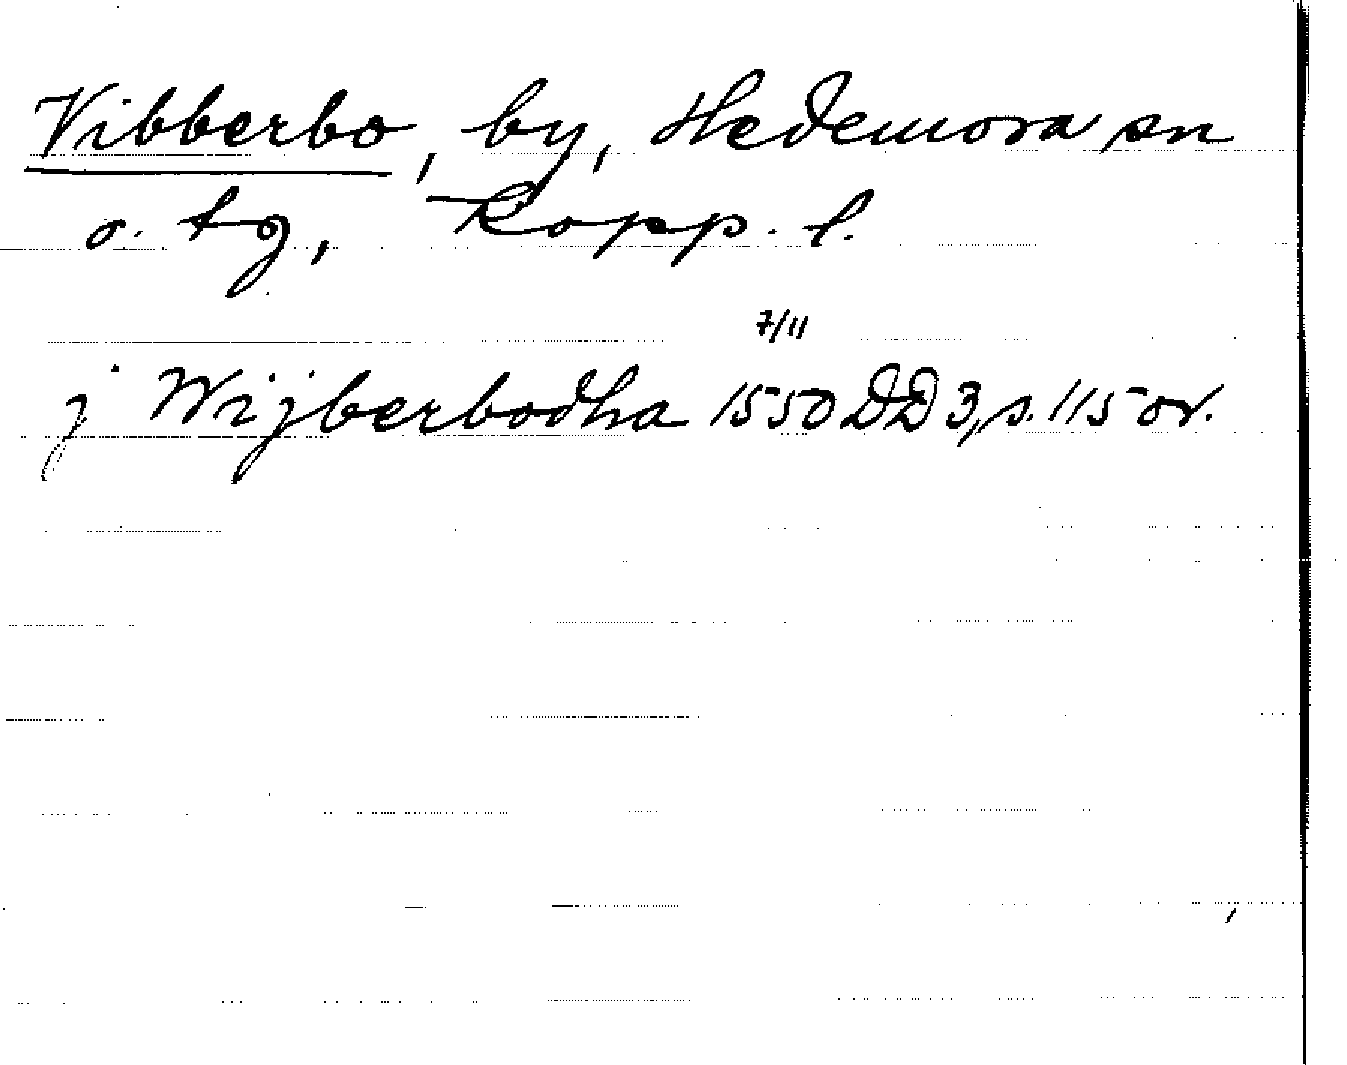 Vibberbo, by, Hedemora sn
o. tg, Kopp. l.
7/11
j Wijberbodha 1550 DD 3, s. 115 or.